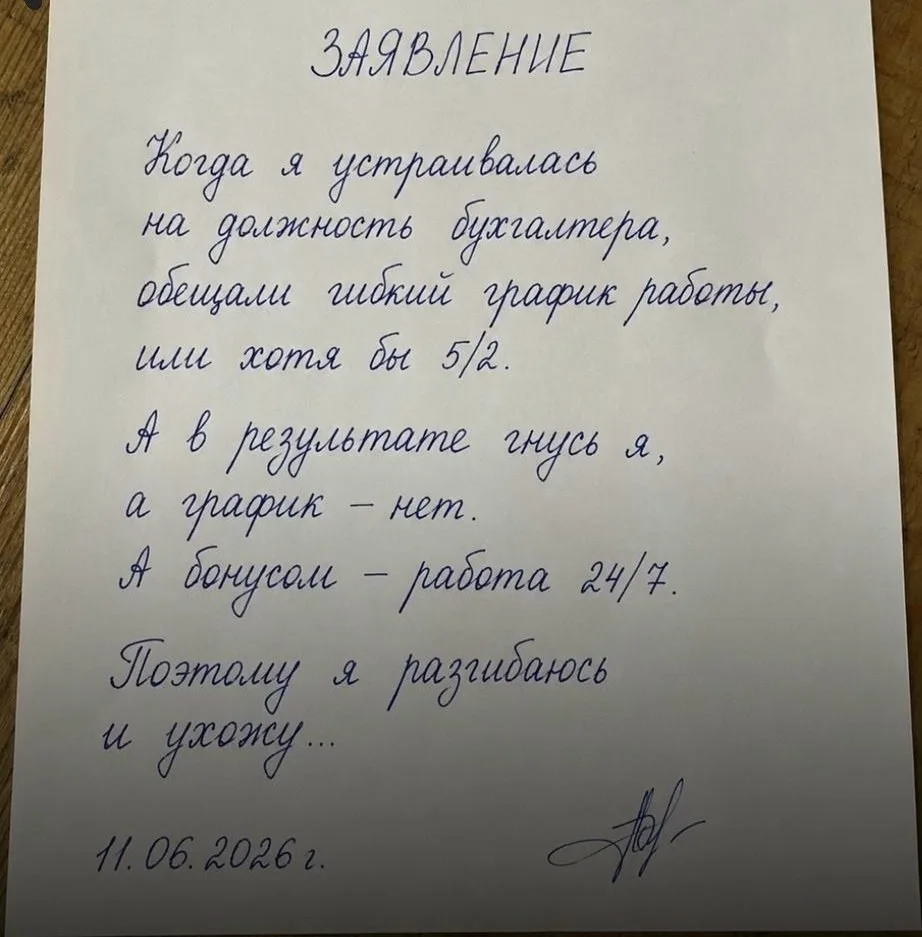 ЗАЯВЛЕНИЕ
Когда я устраивалась
на должность бухгалтера,
обещали гибкий график работы,
или хотя бы 5/2.
А в результате гнусь я,
а график – нет.
А бонусом – работа 24/7.
Поэтому я разгибаюсь
и ухожу...
11.06.2026 г.